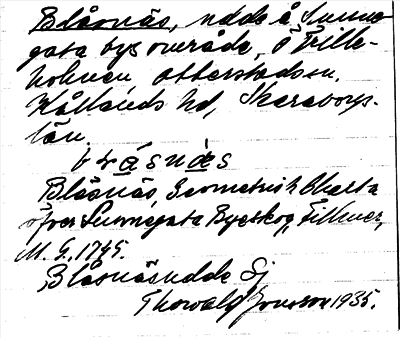 Blåsnäs, udde å Sunne-
gata bys område, Ö Fille-
kolnen, Otterstads sn,
Kållands hd, Skaraborgs
län.
blåsnäs
Blåsnäs, Geometrisk Charta
öfver Sunnegata Byeskog, Fillmer,
M. G. 1745.
Blåsnäsudde Sj
Thorvald Jonsson 1935.